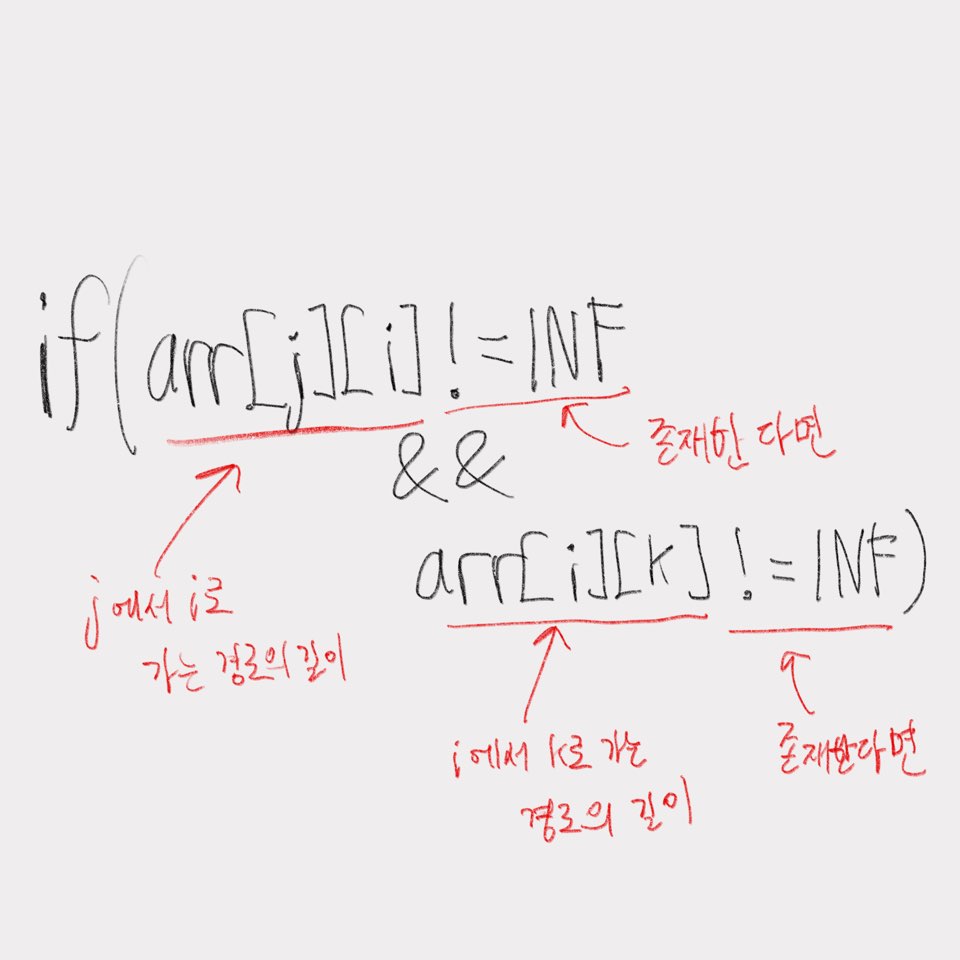 if(arr[j][i]!=INF
존재한다면
&&
arr[i][k]!=INF)
j에서 i로
가는 경로의 길이
i에서 k로 가는
경로의 길이
존재한다면